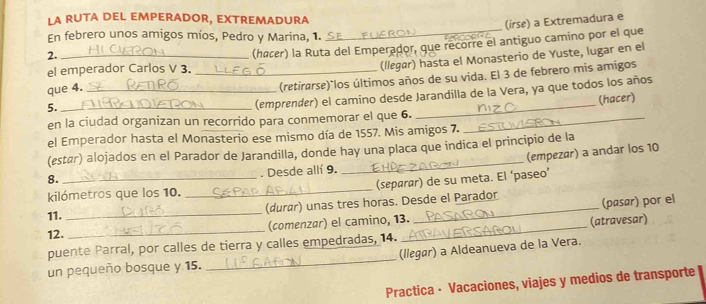 LA RUTA DEL EMPERADOR, EXTREMADURA
En febrero unos amigos míos, Pedro y Marina, 1. SE FUERON (irse) a Extremadura e
2. HICIERON (hacer) la Ruta del Emperador, que recorre el antiguo camino por el que
el emperador Carlos V 3. LLEGÓ (llegar) hasta el Monasterio de Yuste, lugar en el
que 4. SE RETIRÓ (retirarse) los últimos años de su vida. El 3 de febrero mis amigos
5. EMPRENDIERON (emprender) el camino desde Jarandilla de la Vera, ya que todos los años
en la ciudad organizan un recorrido para conmemorar el que 6. HIZO (hacer)
el Emperador hasta el Monasterio ese mismo día de 1557. Mis amigos 7. ESTUVIERON
(estar) alojados en el Parador de Jarandilla, donde hay una placa que indica el principio de la
8. . Desde allí 9. EMPEZARON (empezar) a andar los 10
kilómetros que los 10. SEPARABAN (separar) de su meta. El ‘paseo’
11. DURÓ (durar) unas tres horas. Desde el Parador
12. (comenzar) el camino, 13. PASARON (pasar) por el
puente Parral, por calles de tierra y calles empedradas, 14. ATRAVERSARON (atravesar)
un pequeño bosque y 15. (llegar) a Aldeanueva de la Vera.
Practica - Vacaciones, viajes y medios de transporte